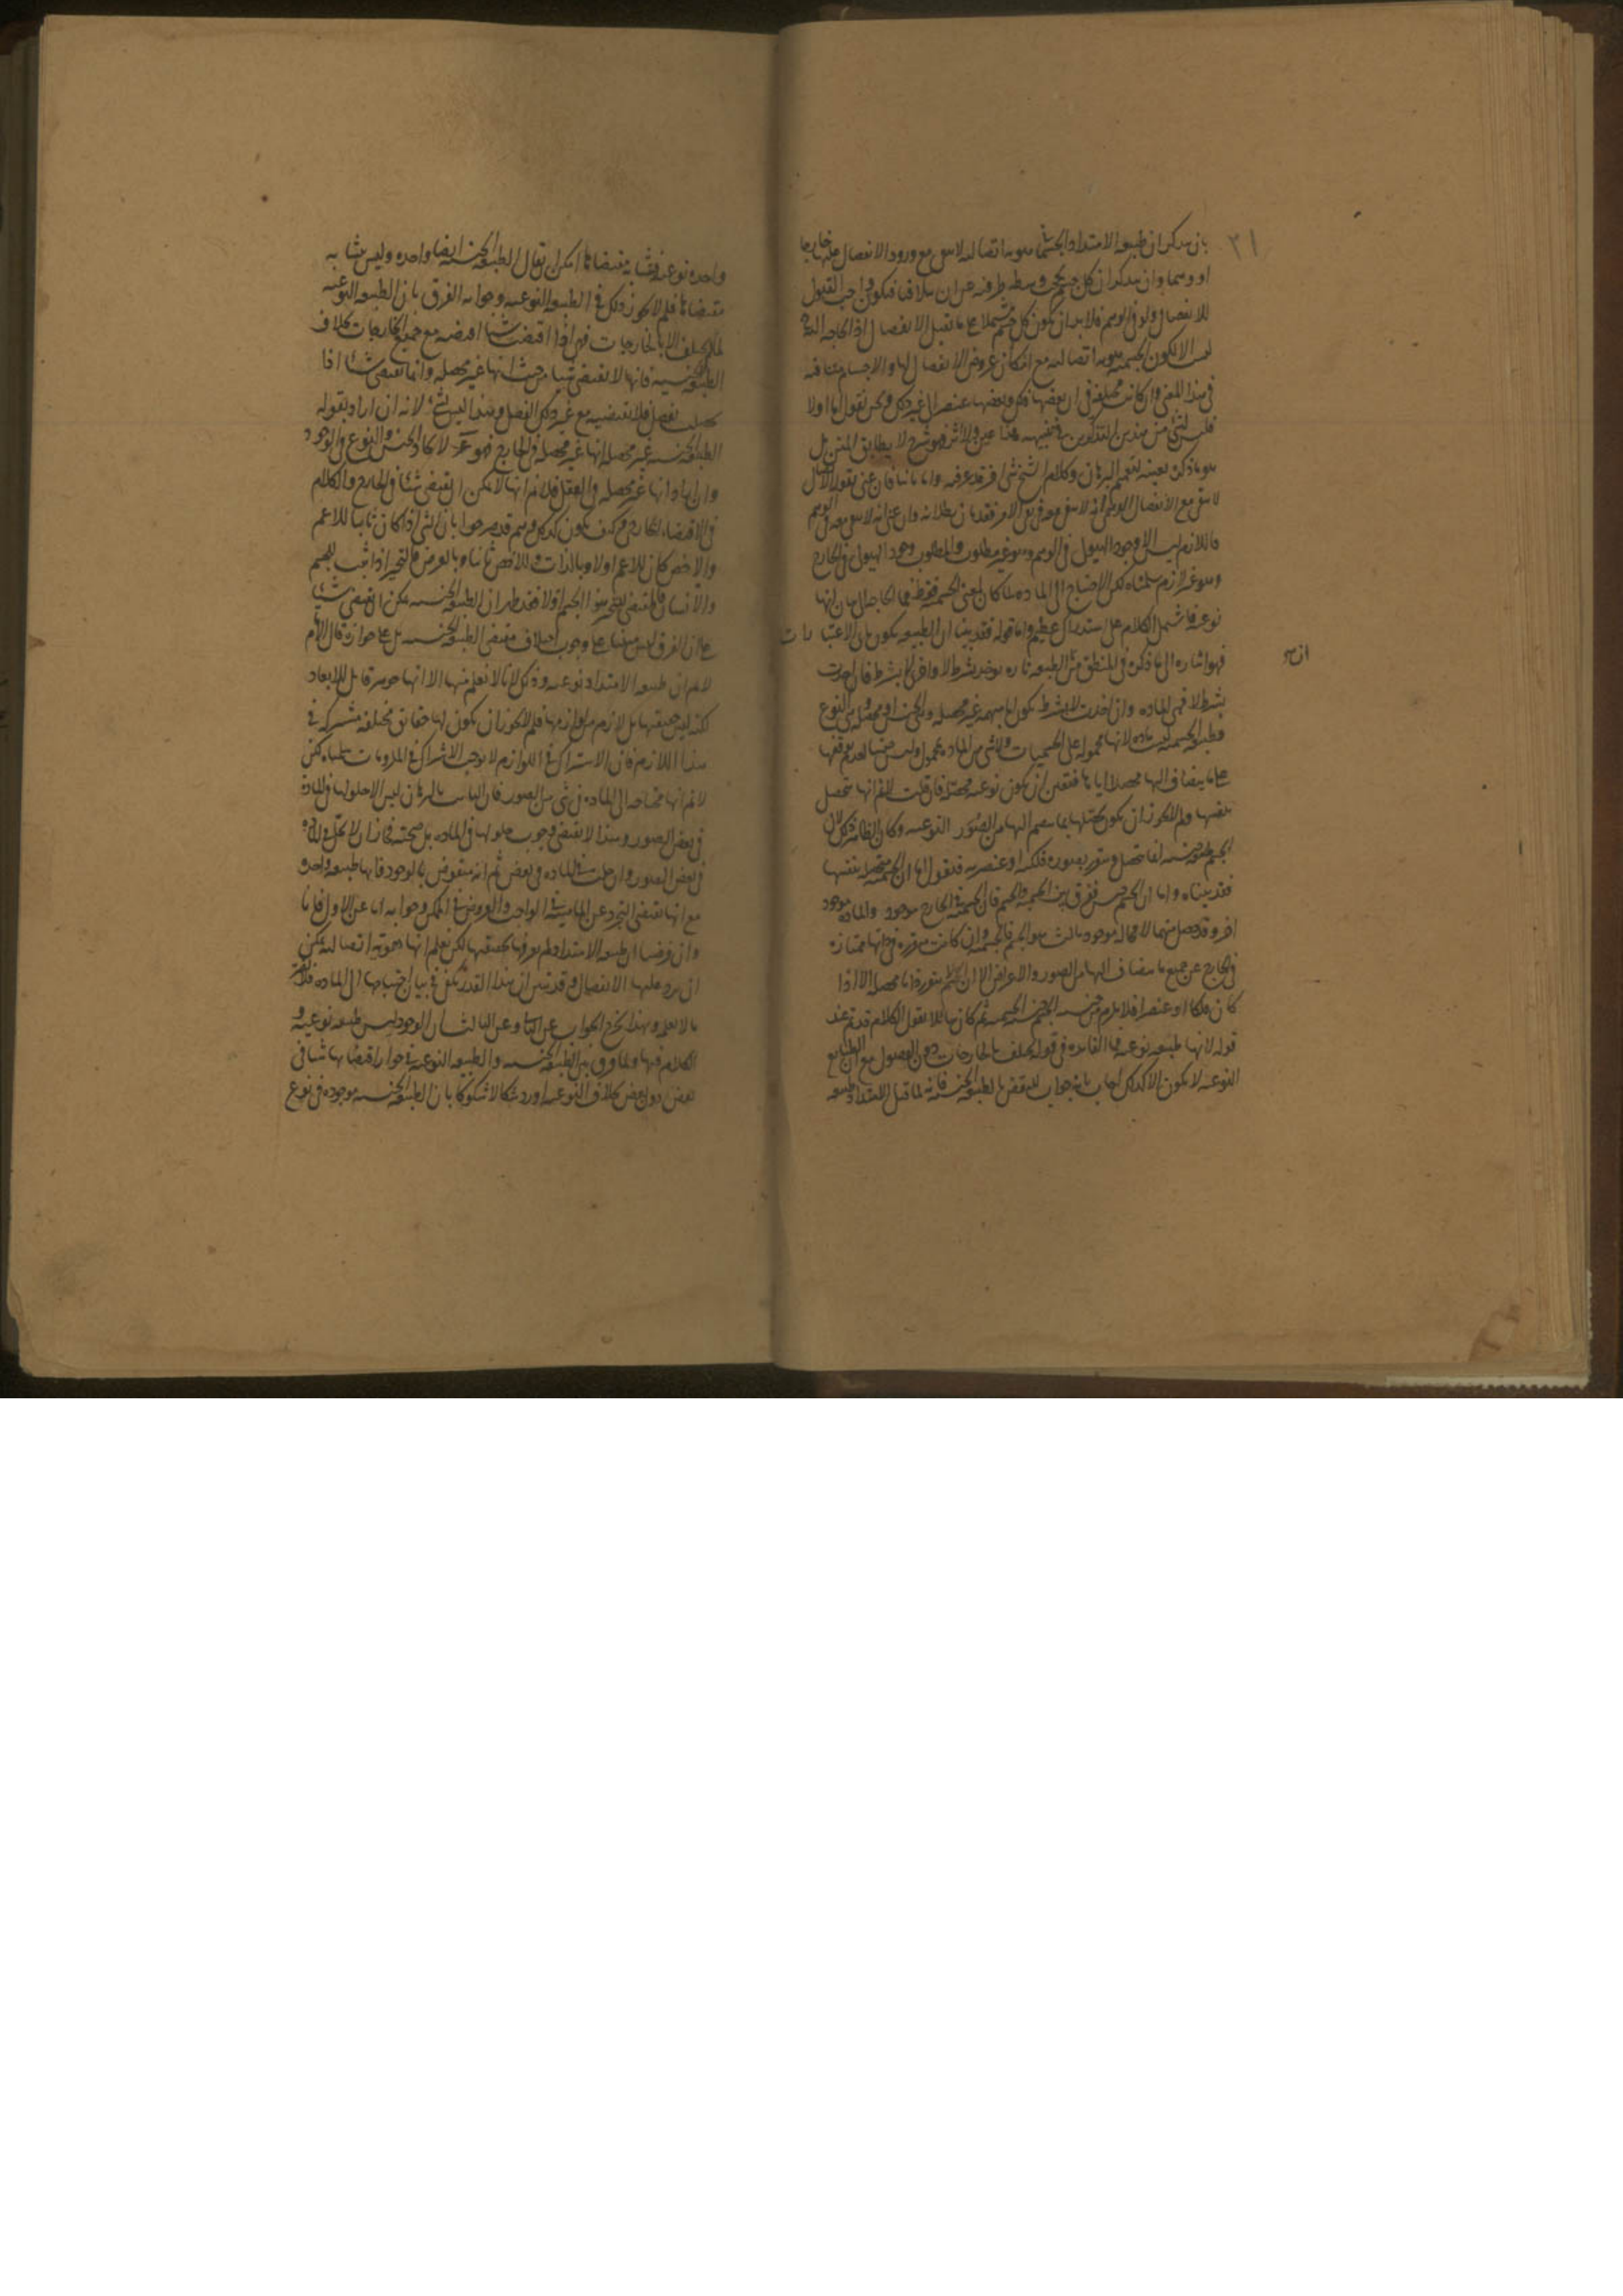 ٣١
بان يذكر ان طبيعه الامتداد الجسمانى هويه اتصاليه لا تبقى مع ورود الانفصال عليها خارجا
او وهما وان يذكر ان كل جسم يحجب وسطه طرفيه عن ان يتلاقيا فيكون واجب القبول
للانفصال ولو فى الوهم فلابد ان يكون كل جسم مشتملا على ما يقبل الانفصال اذ الحاجه اليه
ليست الا لكون الجسميه هويه اتصاليه مع امكان عروض الانفصال لها والاجسام متفقه
فى هذا المعنى وان كانت مختلفه فى ان بعضها فلكى وبعضها عنصرى الى غير ذلك ونحن نقول اما اولا
فليس لشئ من هذين التذكيرين فى تنبيهه هذا عين ولا اثر فهو شرح لا يطابق المتن بل
هو ما ذكره بعينه لتعميم البرهان وكلام الشيخ شئ اخر قد عرفته واما ثانيا فان عنى بقوله الاتصال
لا يبقى مع الانفصال الوهمى انه لا يبقى معه فى نفس الامر فقد بان بطلانه وان عنى انه لا يبقى معه فى الوهم
فاللازم ليس الا وجود الهيولى فى الوهم وهو غير مطلوب والمطلوب وجود الهيولى فى الخارج
وهو غير لازم سلمناه لكن الاحتياج الى الماده لما كان لمعنى الجسميه فقط فما الحاجه الى بيان انها
نوعيه فاشتمل الكلام على استدراك عظيم واما قوله فقد بينا ان الطبيعه تكون باى الاعتبارات
فهو اشاره الى ما ذكره فى المنطق من ان الطبيعه تاره توخذ بشرط لا واخرى لا بشرط فان اخذت
بشرط لا فهى الماده وان اخذت لا بشرط تكون اما مبهمه غير محصله وهى الجنس او محصله وهى النوع
فطبيعه الجسميه ليست ماده لانها محموله على الجسميات ولا شئ من الماده بمحمول وليس جنسا لعدم توقفها
على ما ينضاف اليها محصلا اياها فتعين ان تكون نوعيه محصله فان قلت لا نم انها تتحصل
بنفسها ولم لا يجوز ان يكون تحصلها بما ينضم اليها من الصور النوعيه وكان الظاهر ذلك لان
الجسم طبيعه جنسيه انما تتحصل وتتقرر بصوره فلكيه او عنصريه فنقول اما ان الجسميه متحصله بنفسها
فقد بيناه واما ان الجسم جنس ففرق بين الجسميه والجسم فان الجسميه فى الخارج موجود والماده موجود
اخر وقد حصل منهما لا محاله موجود ثالث هو الجسم فالجسميه وان كانت متقرره فى ذاتها ممتازه
فى الخارج عن جميع ما ينضاف اليها من الصور والاعراض الا ان الجسم لم يتقرر ذاتا محصلا الا اذا
كان فلكا او عنصرا فلا يلزم من جنسيه الجسم جنسيه الجسميه ثم كان سائلا يقول الكلام قد تم عند
قوله لانها طبيعه نوعيه فما الفائده فى قوله تختلف بالخارجات دون الفصول مع ان الطبايع
النوعيه لا تكون الا كذلك اجاب بانه جواب للنقض بالطبيعه الجنسيه فانه لما قيل الامتداد طبيعه
واحده نوعيه فتشابه مقتضاتها امكن ان يقال الطبيعه الجنسيه ايضا واحده وليس يتشابه
مقتضاتها فلم لا يجوز ذلك فى الطبيعه النوعيه وجوابه الفرق بان الطبيعه النوعيه
لما لم تختلف الا بالخارجات فهى اذا اقتضت شيئا اقتضته مع جميع الخارجات بخلاف
الطبيعه الجنسيه فانها لا تقتضى شيئا من حيث انها غير محصله وانما تقتضى شيئا اذا
تحصلت بفصل فلا تقتضيه مع غير ذلك الفصل وهذا ليس بشئ لانه ان اراد بقوله
الطبيعه الجنسيه غير محصله انها غير محصله فى الخارج فهو مم لاتحاد الجنس والنوع فى الوجود
وان اراد انها غير محصله فى العقل فلا نم انها لا يمكن ان تقتضى شيئا فى الخارج والكلام
فى الاقتضاء الخارجى وكيف يكون كذلك وهم قد صرحوا بان الشئ اذا كان ثابتا للاعم
والاخص كان للاعم اولا وبالذات وللاخص ثانيا وبالعرض فالتحيز اذا ثبت للجسم
والانسان فالمقتضى للتحيز هو الجسم اولا فقد ظهر ان الطبيعه الجنسيه يمكن ان تقتضى شيئا
على ان الفرق ليس مبنيا على وجوب اختلاف مقتضى الطبيعه الجنسيه بل على جوازه قال الامام
لا نم ان طبيعه الامتداد نوعيه وذلك لانا لا نعلم منها الا انها جوهر قابل للابعاد
لكنه ليس حقيقتها بل لازم من لوازمها فلم لا يجوز ان يكون لها حقائق مختلفه مشتركه فى
هذا اللازم فان الاشتراك فى اللوازم لا يوجب الاشتراك فى الملزومات سلمناه لكن
لا نم انها محتاجه الى الماده فى شئ من الصور فان الثابت بالبرهان ليس الا حلولها فى الماده
فى بعض الصور وهذا لا يقتضى وجوب حلولها فى الماده بل صحته فجاز ان لا تحل فى الماده
فى بعض الصور وان حلت فى الماده فى بعض ثم انه منقوض بالوجود فانها طبيعه واحده
مع انها تقتضى التجرد عن الماهيه فى الواجب والعروض فى الممكن وجوابه اما عن الاول فلانا
وان فرضنا ان طبيعه الامتداد لم نعرفها بحقيقتها لكن نعلم انها هويه اتصاليه يمكن
ان يرد عليها الانفصال وقد تبين ان هذا القدر يكفى فى بيان احتياجها الى الماده فلا يضر
ما لا نعلمه وبهذا يخرج الجواب عن الثانى وعن الثالث ان الوجود ليس طبيعه نوعيه و
الكلام فيها ولما فرق بين الطبيعه الجنسيه والطبيعه النوعيه فى جواز اقتضائها شيئا فى
بعض دون بعض بخلاف النوعيه اورد شكا لا شكوكا بان الطبيعه الجنسيه موجوده فى نوع